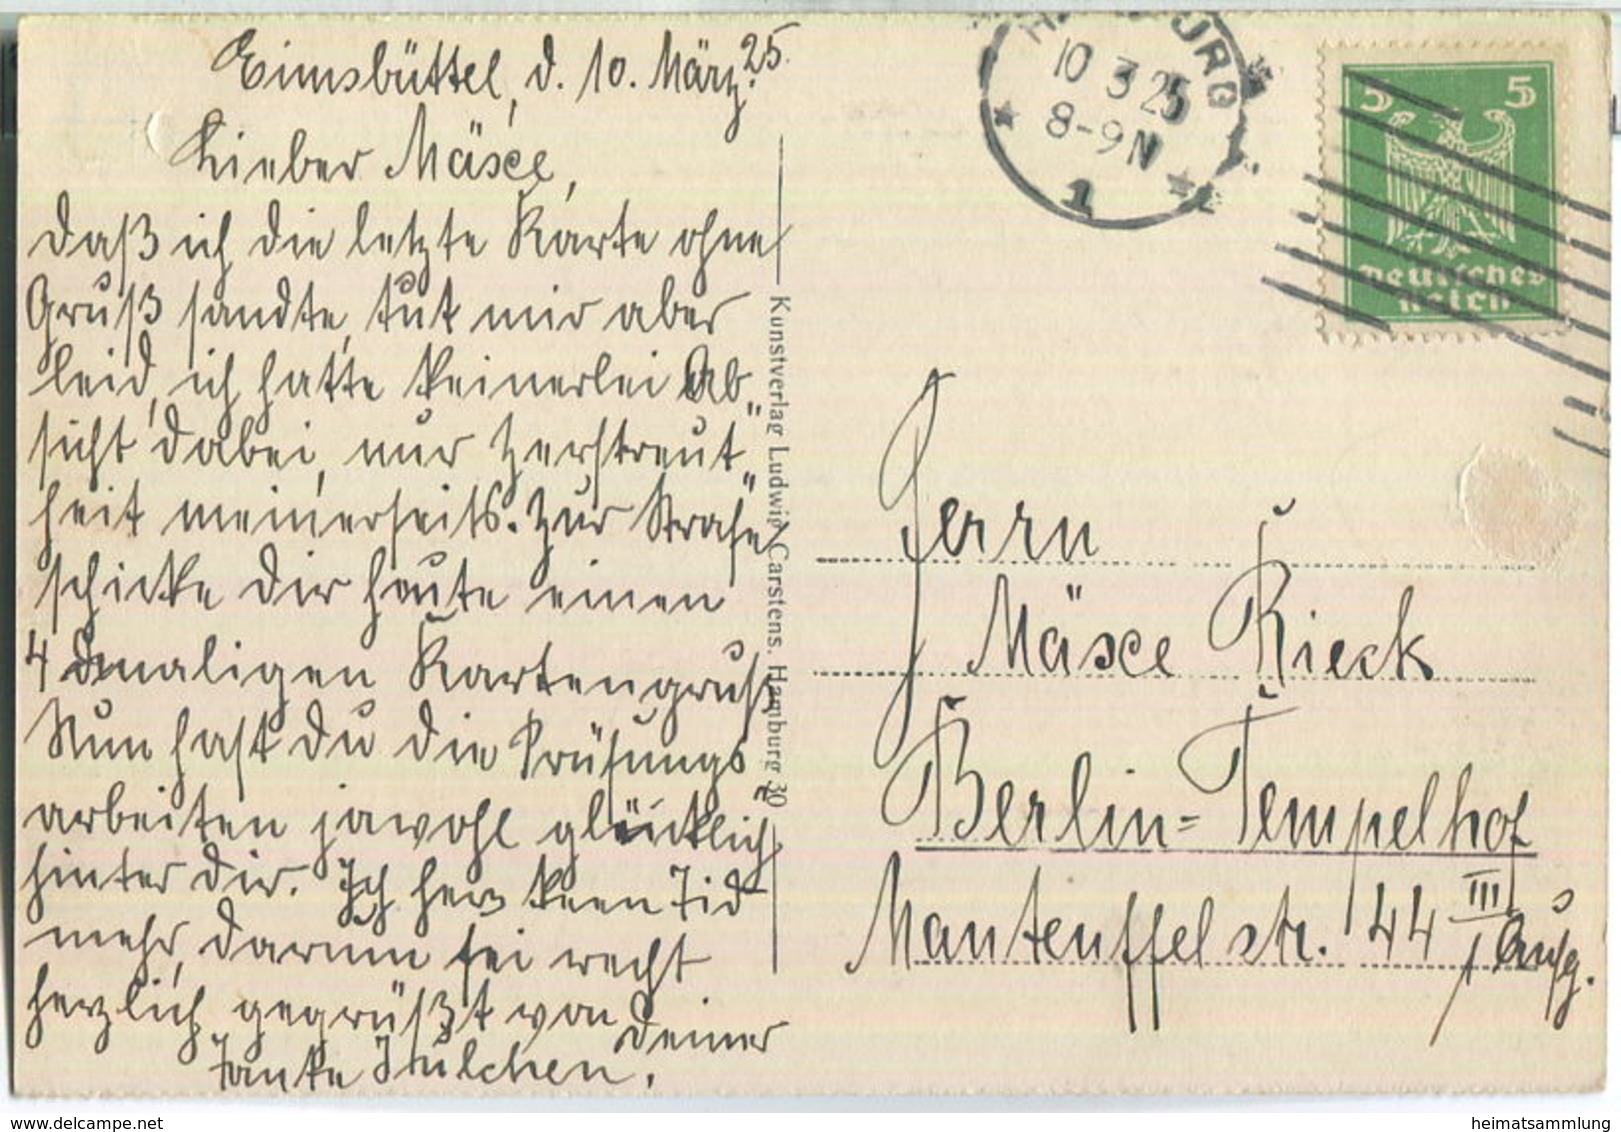 Eimsbüttel, d. 10. März 25.
Lieber Mäsce,
daß ich die letzte Karte ohne
Gruß sandte, tut mir aber
leid, ich hatte keinerlei Ab„
sicht dabei, nur Zerstreut„
heit meinerseits. Zur Strafe
schicke Dir heute einen
4 maligen Kartengruß.
Nun hast Du die Prüfungs
arbeiten jawohl glücklich
hinter Dir. Ich hev keen Tid
mehr, darum sei recht
herzlich gegrüßt von Deiner
Tante Julchen.
Kunstverlag Ludwig Carstens. Hamburg 30
HAMBURG
10 3 25
8-9 N
1
5 5
Deutsches
Reich
Herrn
Mäsce Rieck
Berlin-Tempelhof
Manteuffelstr. 44 III
1 Aufg.
www.ansichtskarten-center.de
heimatsammlung